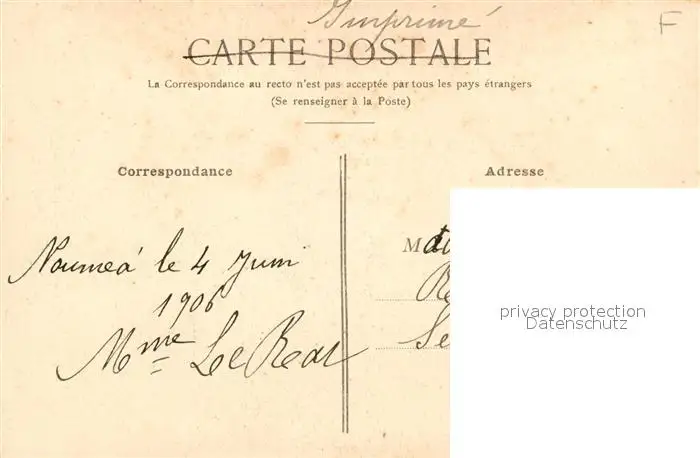 Imprimé
F
CARTE POSTALE
La Correspondance au recto n'est pas acceptée par tous les pays étrangers
(Se renseigner à la Poste)
Correspondance
Adresse
Nouméa le 4 Juin
1906
Mme Le
M
privacy protection
Datenschutz